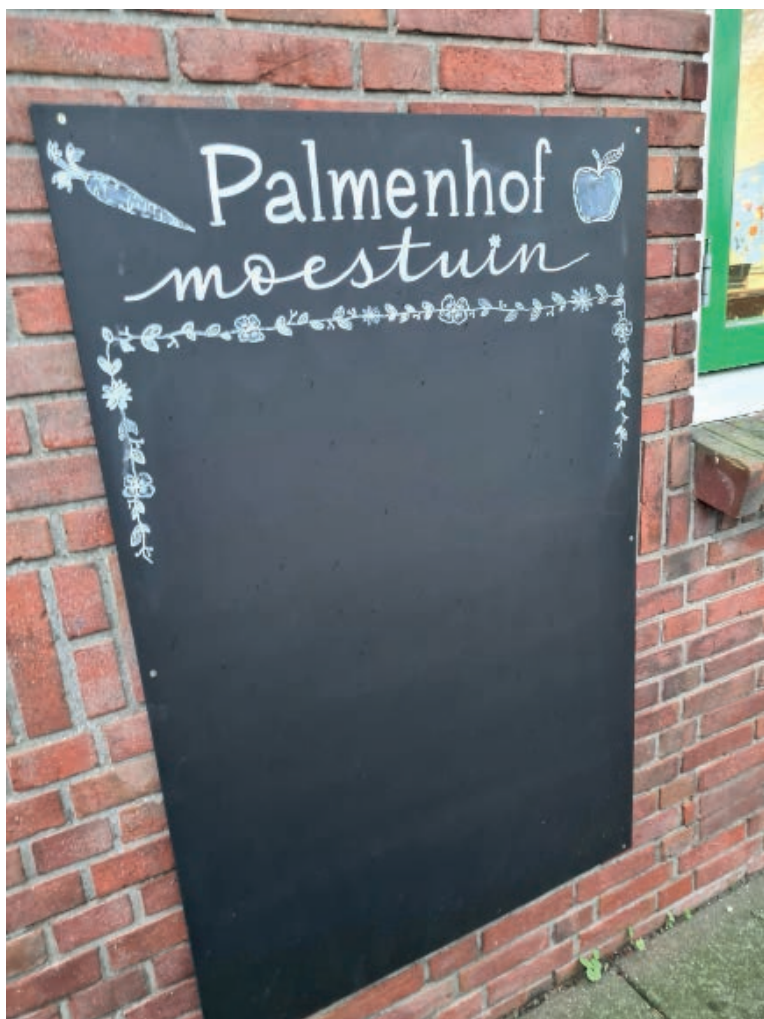 Palmenhof
moestuin